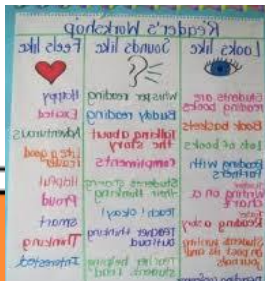 Reader's Workshop
Looks like
Students are
reading books
Book baskets
Lots of books
Reading with
Partners
writing on a
chart
Reading a story
Student writing
on post its and
journals
Sounds like
Whisper reading
Buddy reading
Talking about
the story
Compliments
Students sharing
their thinking
Teach! Okay!
Teacher thinking
outloud
Teacher helping
student. Lead
Feels like
Happy
Excited
Adventurous
Like a good
reader
Helpful
Proud
smart
Thinking
Interested